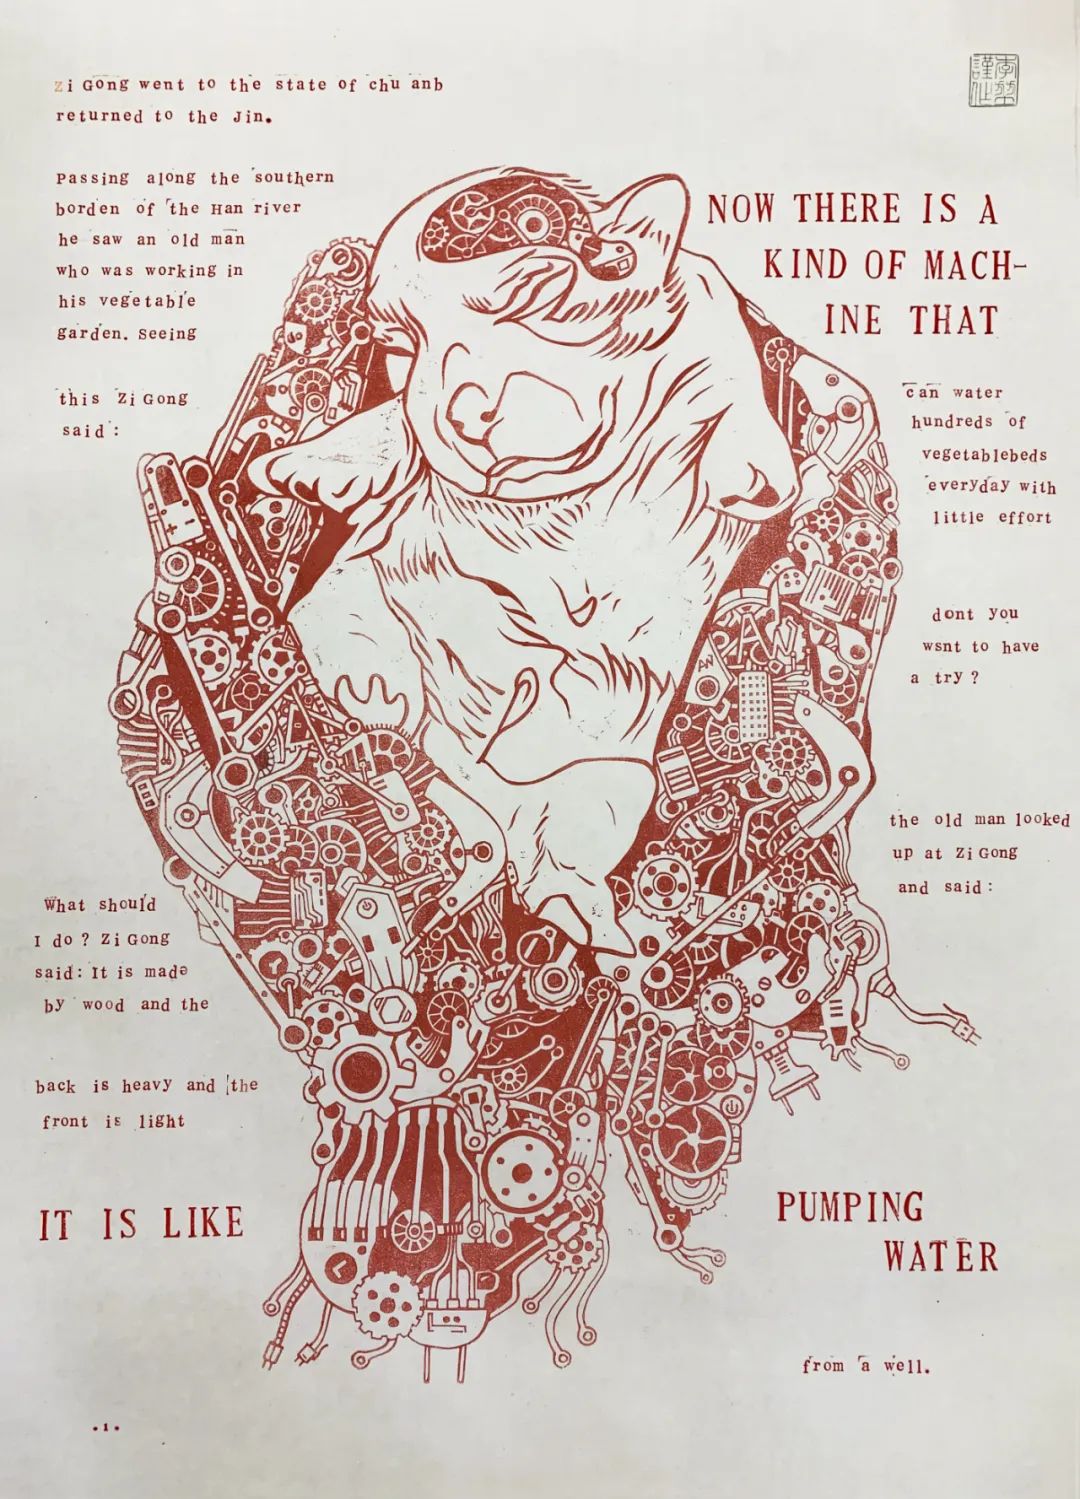 zi Gong went to the state of chu anb
returned to the Jin.
Passing along the southern
borden of the Han river
he saw an old man
who was working in
his vegetable
garden. seeing
this Zi Gong
said:
NOW THERE IS A
KIND OF MACH-
INE THAT
can water
hundreds of
vegetablebeds
everyday with
little effort
dont you
wsnt to have
a try?
the old man looked
up at Zi Gong
and said:
What should
I do? Zi Gong
said: It is made
by wood and the
back is heavy and the
front is light
IT IS LIKE
PUMPING
WATER
from a well.
•1•
AW
AW